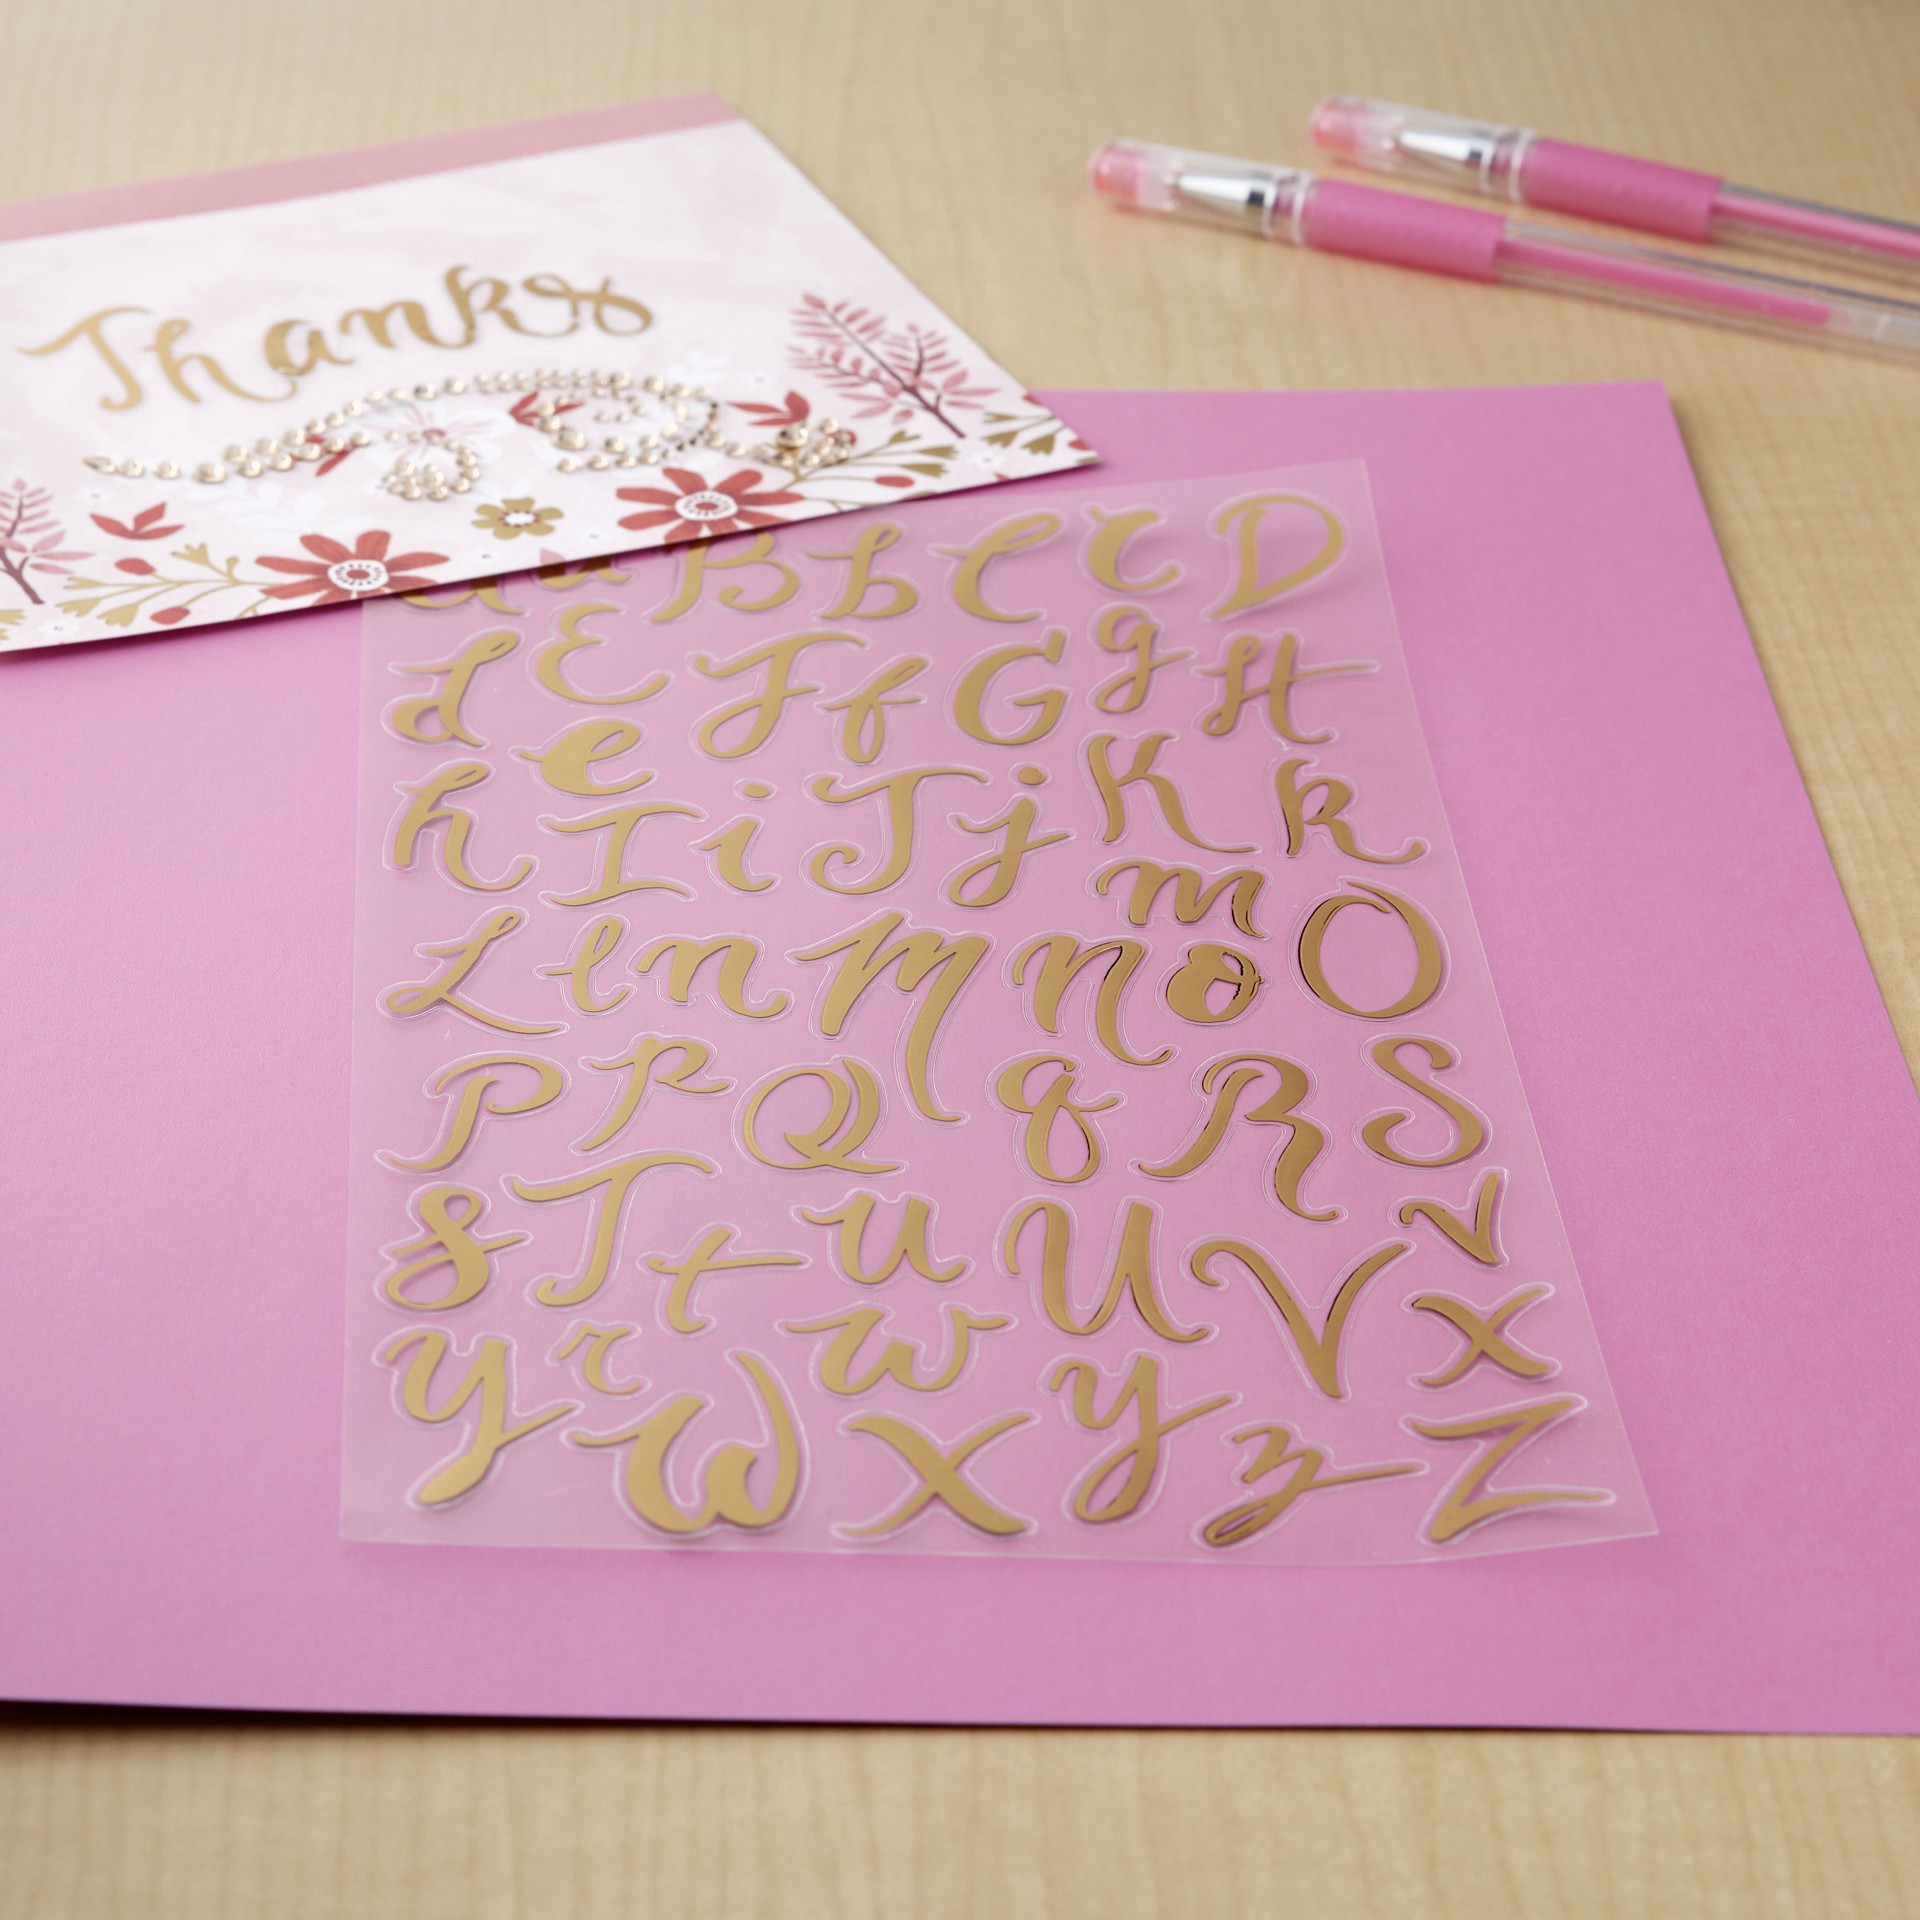 Thanks
a B b C c D
d E F f G g H
h e I i J j K k
L l n M m n o O
P p Q q R S
s T t u U V v
y r W w X y z x Z